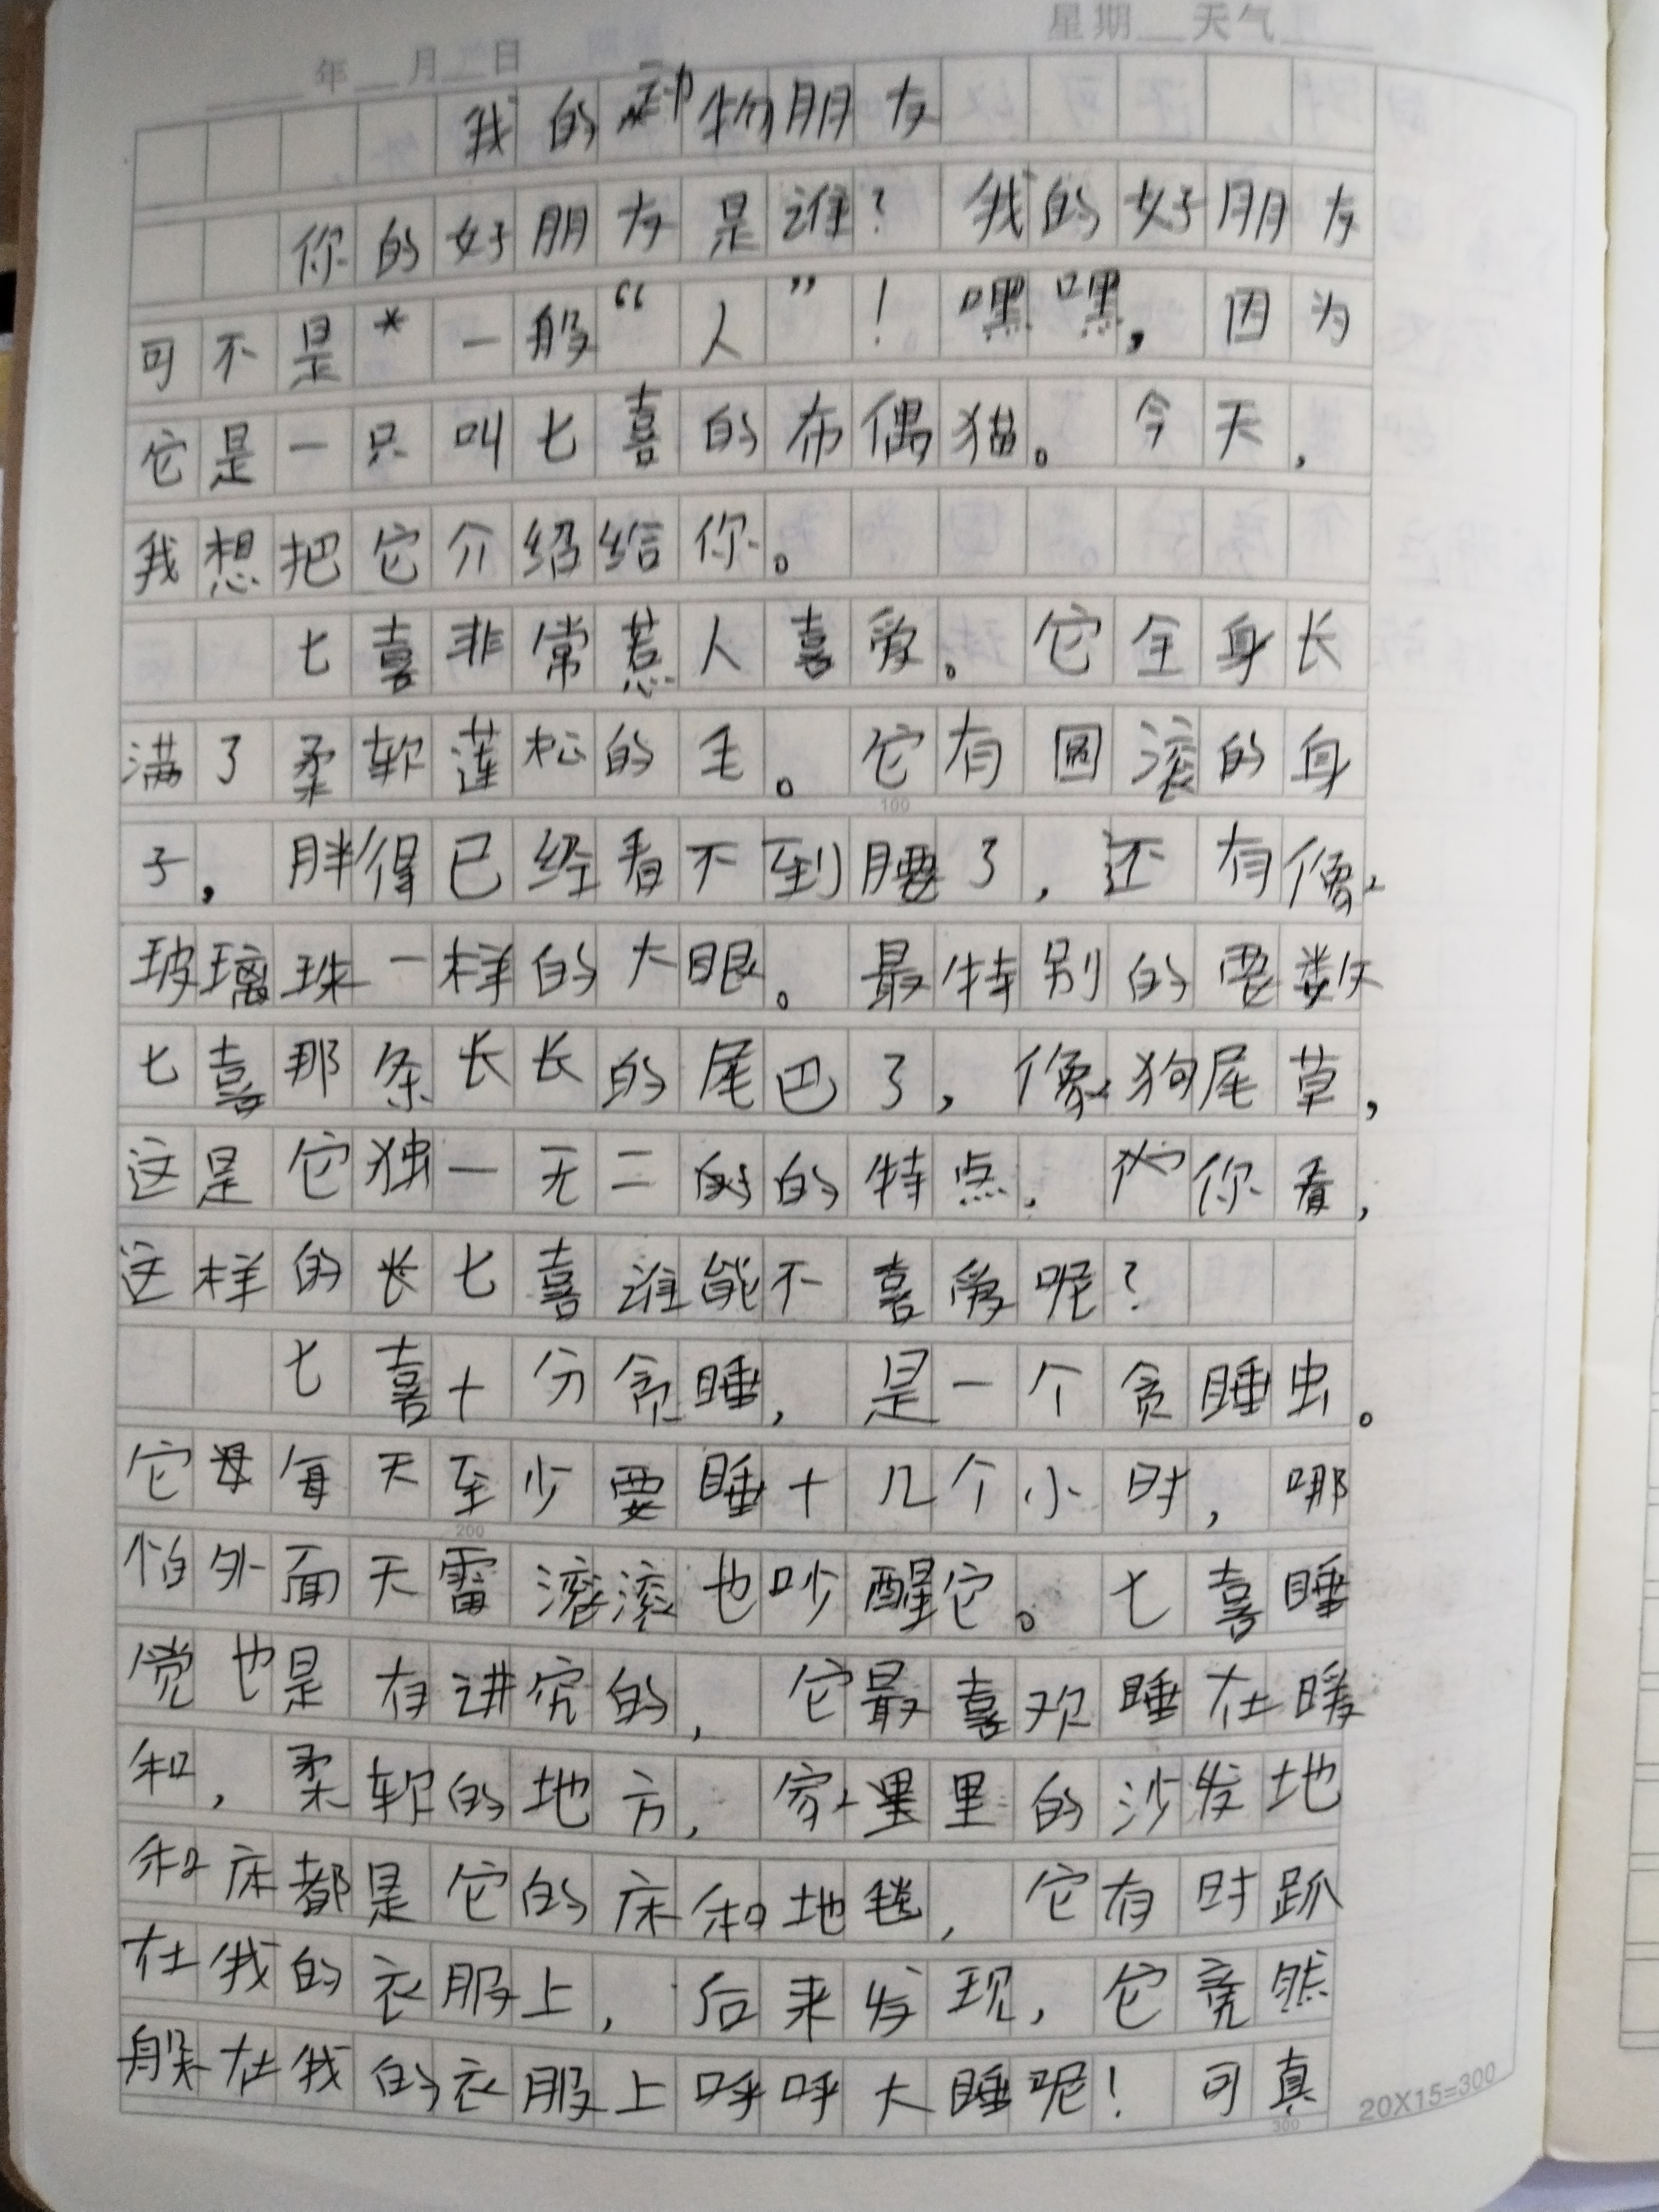 年 月 日 星期 天气
我的动物朋友
你的好朋友是谁？我的好朋友
可不是一般“人”！嘿嘿，因为
它是一只叫七喜的布偶猫。今天，
我想把它介绍给你。
七喜非常惹人喜爱。它全身长
满了柔软蓬松的毛。它有圆滚的身
子，胖得已经看不到腰了，还有像
玻璃珠一样的大眼。最特别的要数
七喜那条长长的尾巴了，像狗尾草，
这是它独一无二的特点．你看，
这样的长七喜谁能不喜爱呢？
七喜十分贪睡，是一个贪睡虫。
它每天至少要睡十几个小时，哪
怕外面天雷滚滚也吵醒它。七喜睡
觉也是有讲究的，它最喜欢睡在暖
和，柔软的地方，家里的沙发地
和床都是它的床和地毯，它有时趴
在我的衣服上，后来发现，它竟然
躲在我的衣服上呼呼大睡呢！可真
100
200
300
20X15=300